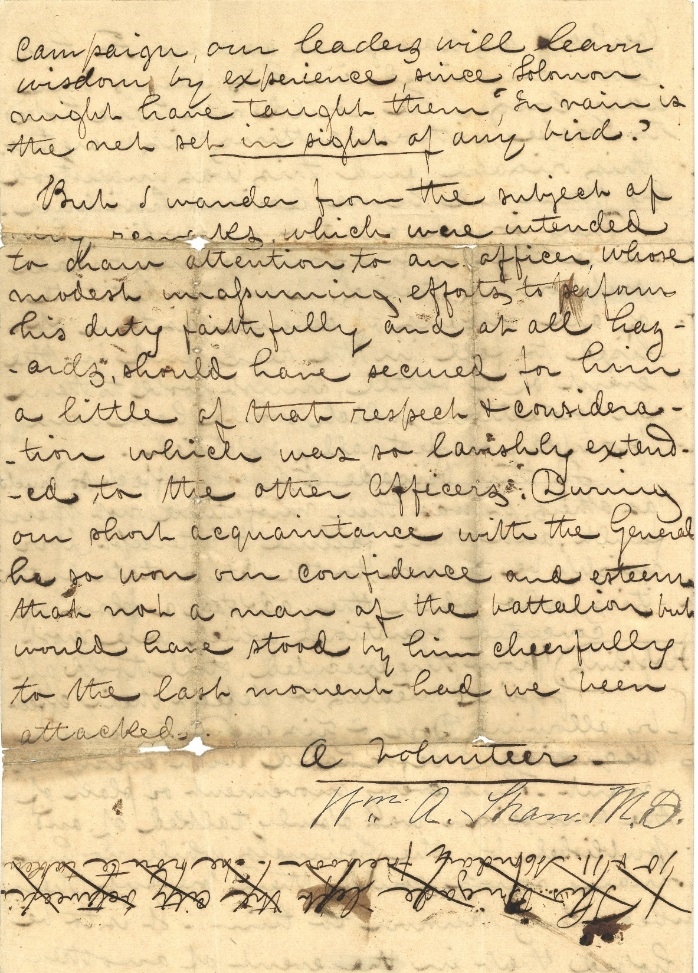 campaign, our leaders will learn
wisdom by experience, since Solomon
might have taught them, "In vain is
the net set in sight of any bird."
But I wander from the subject of
my remarks, which were intended
to draw attention to an officer, whose
modest unassuming, efforts, to perform
his duty faithfully and at all haz-
-ards, should have secured for him
a little of that respect & considera-
-tion which was so lavishly extend-
-ed to the other Officers. During
our short acquaintance with the General
he so won our confidence and esteem
that not a man of the battalion but
would have stood by him cheerfully
to the last moment had we been
attacked.
A Volunteer.
Wm. A. Shaw. M.D.
This Brigade left the city between
10 & 11 Monday